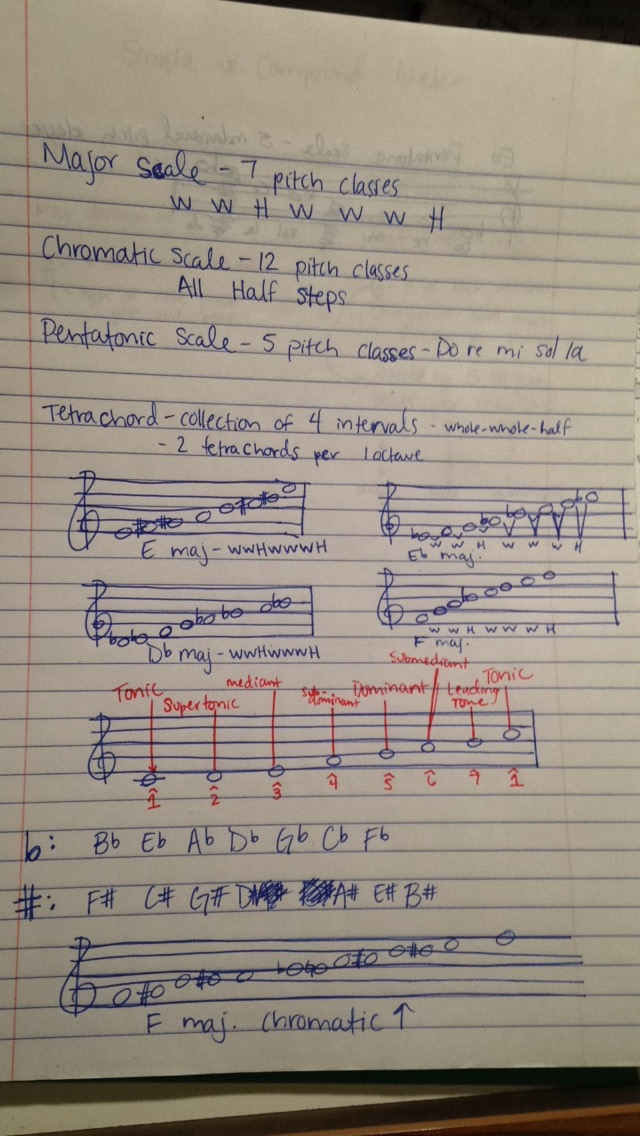 Major scale - 7 pitch classes
W W H W W W H
Chromatic scale - 12 pitch classes
All Half steps
Pentatonic Scale - 5 pitch classes - Do re mi sol la
Tetrachord - collection of 4 intervals - whole-whole-half
- 2 tetrachords per 1 octave
E maj - WWHWWWH
W W H W W W H
Eb maj.
Db maj - WWHWWWH
W W H W W W H
F maj.
Tonic Supertonic mediant Sub-dominant Dominant Submediant Leading Tone Tonic
1̂ 2̂ 3̂ 4̂ 5̂ 6̂ 7̂ 1̂
b: Bb Eb Ab Db Gb Cb Fb
#: F# C# G# D# A# E# B#
F maj. chromatic ↑